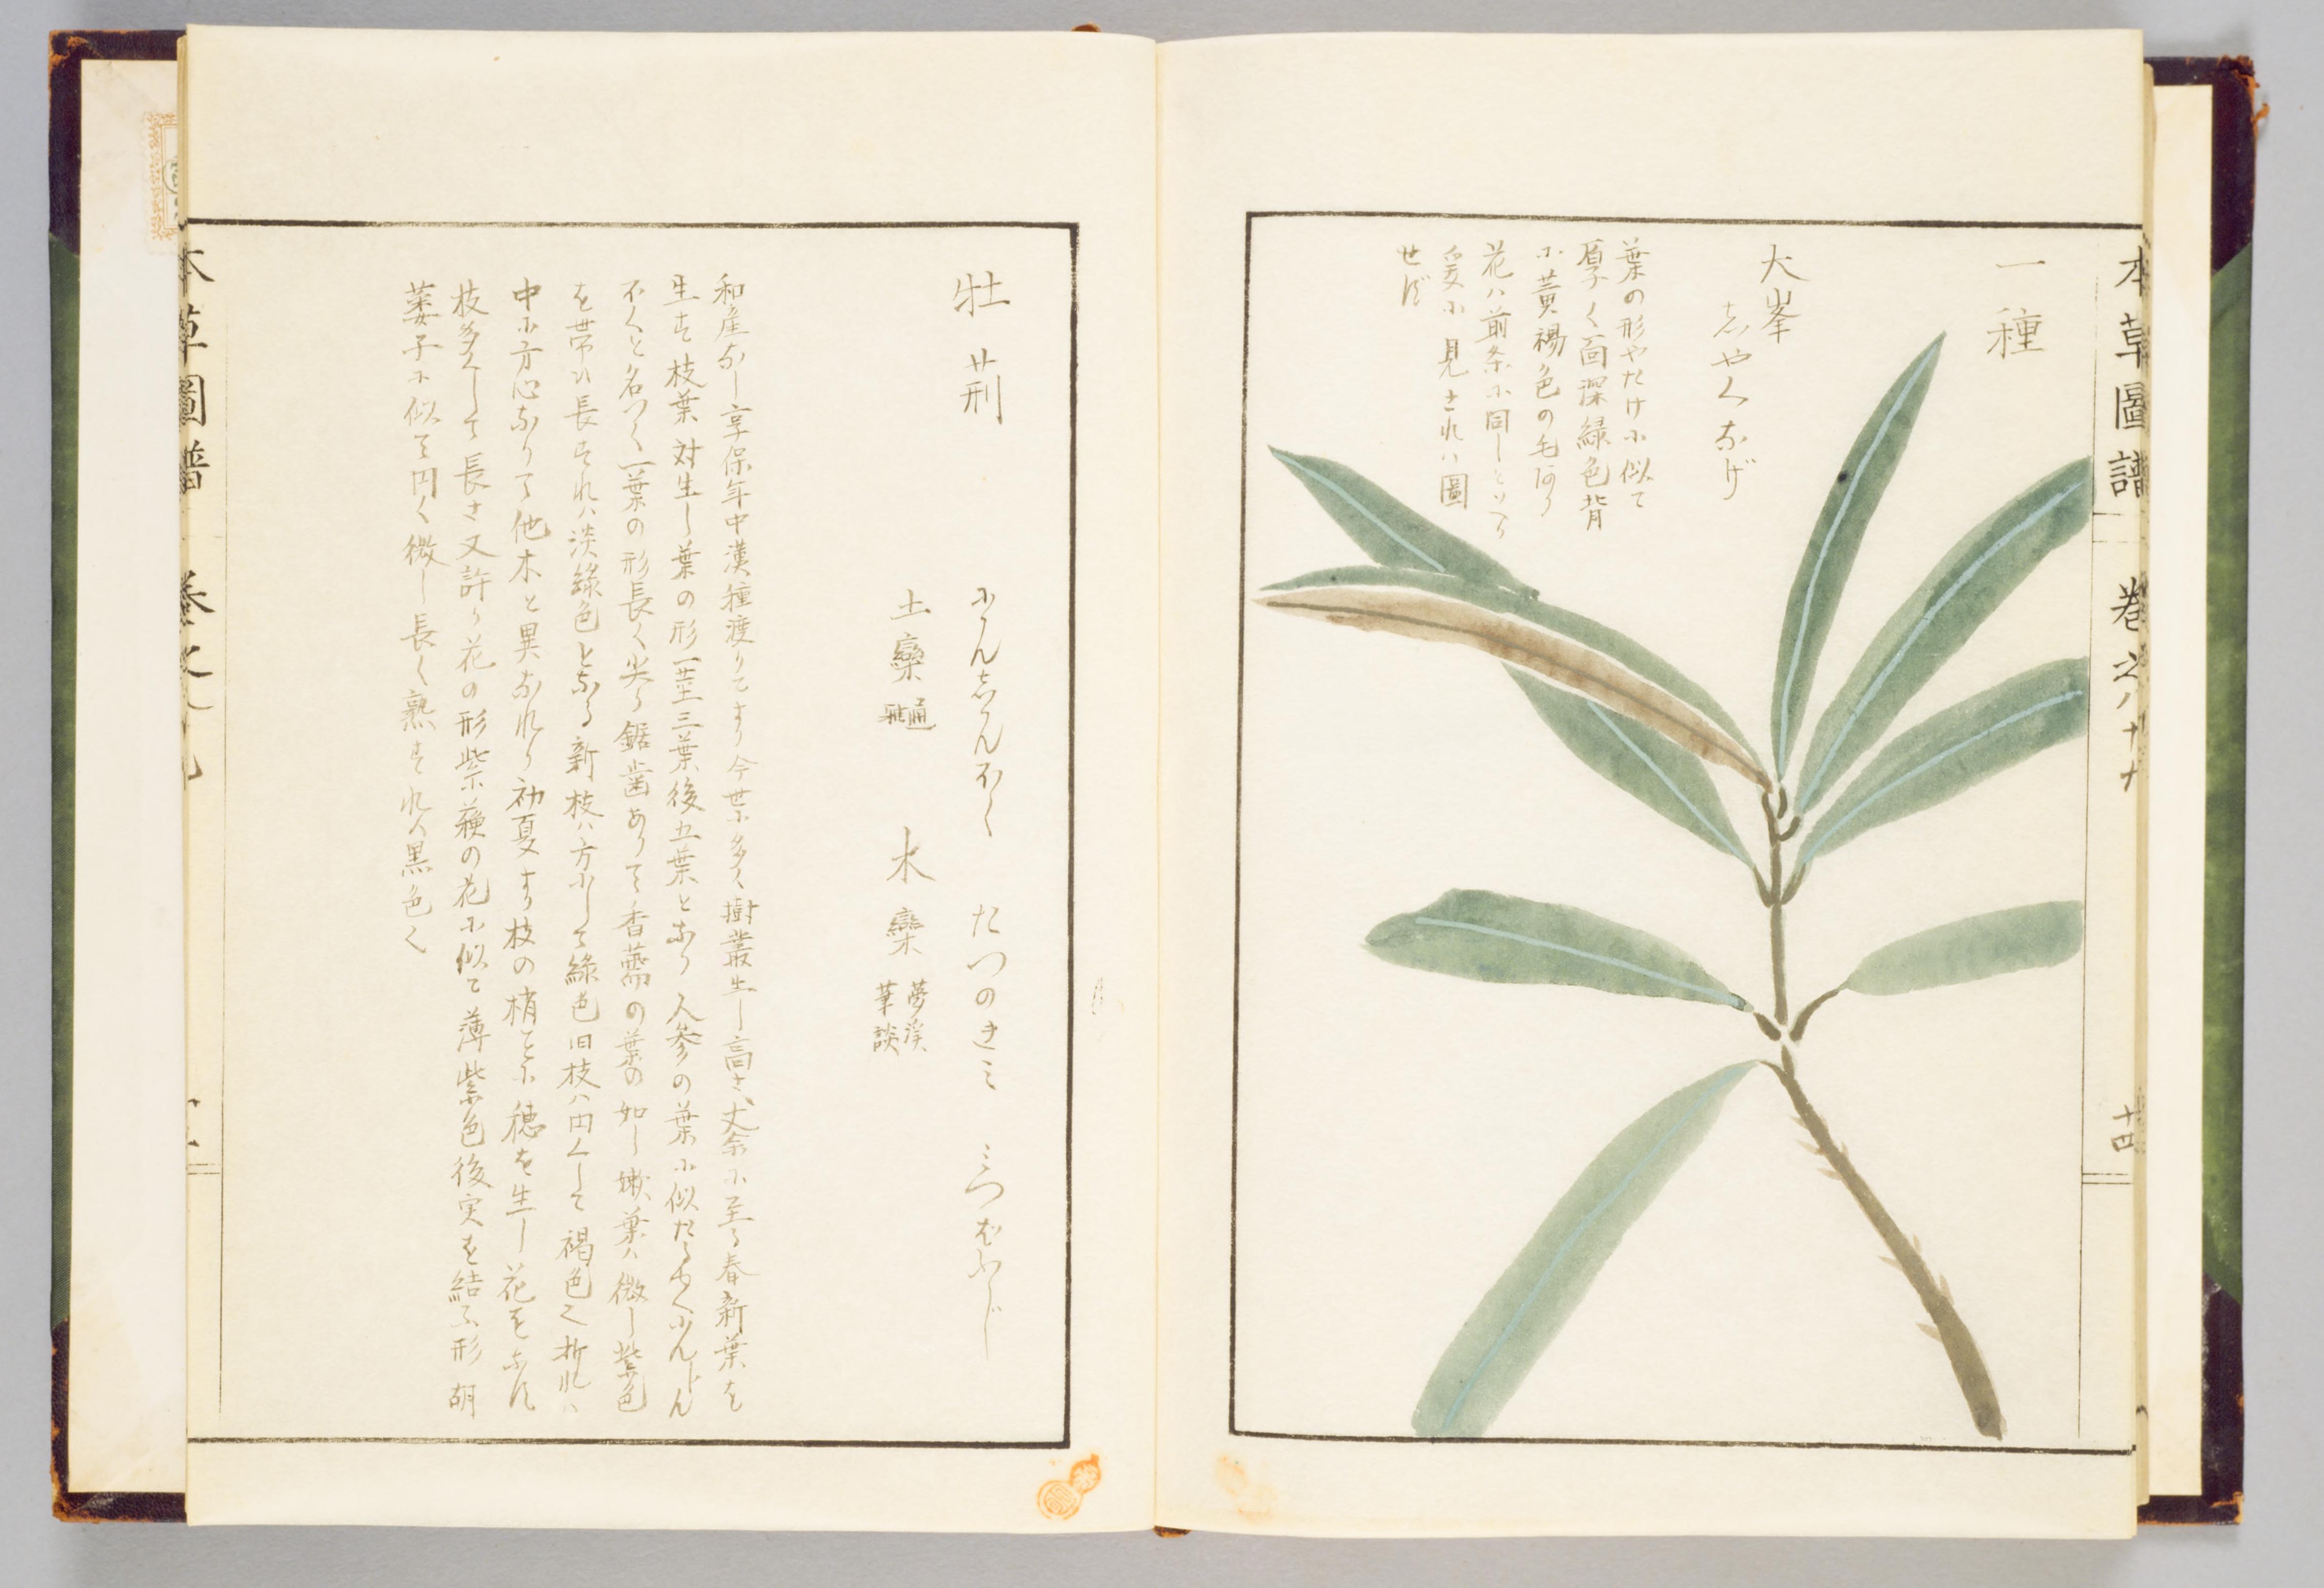 本草圖譜 巻之八十九 十四
一種
大峯
志やくなげ
葉の形やたけ小似て
厚く面深緑色背
小黄褐色の毛あり
花ハ前条小同しといへり
爰小見されハ圖
せず
牡荊 小んじんぼく たつのきミ ミつばふじ
土欒 通雅 木欒 夢渓筆談
和産なし享保年中漢種渡りてより今世小多く樹叢生し高さ丈余小至る春新葉を
生ず枝葉対生し葉の形一莖三葉後五葉となり人参の葉小似たる故小んじん
ぼくと名づく一葉の形長く尖り鋸歯ありて香薷の葉の如し嫩葉ハ微し紫色
を帯ひ長ずれハ淡緑色となる新枝ハ方小して緑色旧枝ハ円くして褐色之折れハ
中小方心ありて他木と異なれり初夏より枝の梢ごと小穂を生し花をなす
枝多くして長さ又許り花の形紫蘓の花小似て薄紫色後実を結ふ形胡
荽子小似て円く微し長く熟すれハ黒色く
本草圖譜 巻之八十九